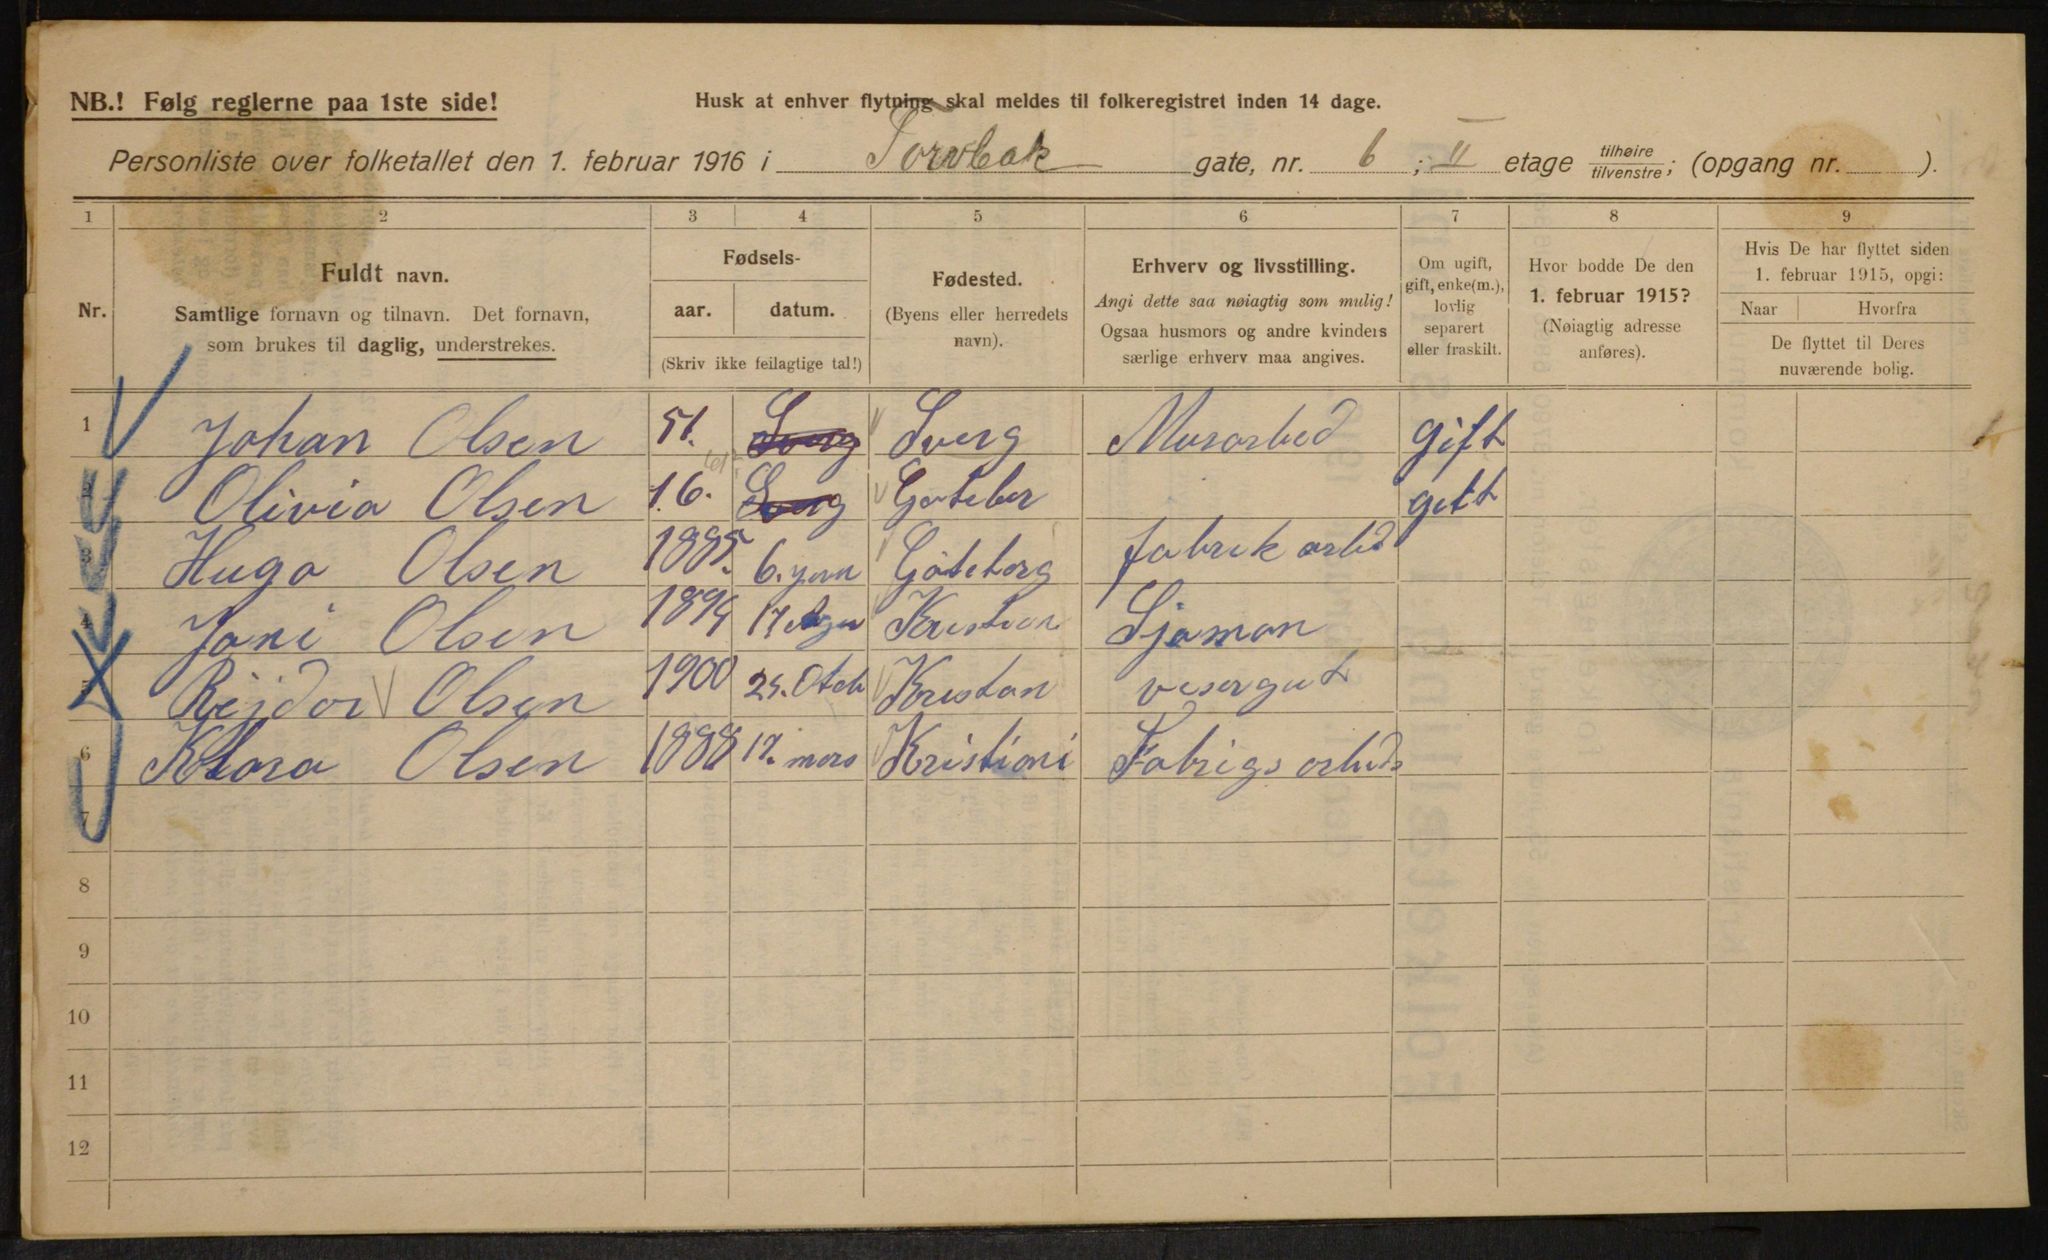 NB.! Følg reglerne paa 1ste side!
Husk at enhver flytning skal meldes til folkeregistret inden 14 dage.
Personliste over folketallet den 1. februar 1916 i Torvbak gate, nr. 6; II etage tilhøire/tilvenstre; (opgang nr. ).
1 2 3 4 5 6 7 8 9
Nr.
Fuldt navn.
Samtlige fornavn og tilnavn. Det fornavn,
som brukes til daglig, understrekes.
Fødsels-
aar. datum.
(Skriv ikke feilagtige tal!)
Fødested.
(Byens eller herredets
navn).
Erhverv og livsstilling.
Angi dette saa nøiagtig som mulig!
Ogsaa husmors og andre kvinders
særlige erhverv maa angives.
Om ugift,
gift, enke(m.),
lovlig
separert
eller fraskilt.
Hvor bodde De den
1. februar 1915?
(Nøiagtig adresse
anføres).
Hvis De har flyttet siden
1. februar 1915, opgi:
Naar Hvorfra
De flyttet til Deres
nuværende bolig.
1 Johan Olsen 51. Sverg Sverg Murarbed gift
2 Olivia Olsen 16. Sverg Gøteber gift
3 Hugo Olsen 1885. 6. Gøteborg fabrik arbid
4 Olsen 1894 17 Kristian Sjøman
5 Rejdor Olsen 1900 25. Otob Kristan visergut
6 Klara Olsen 1888 12. mars Kristiani Fabrigs arbids
7
8
9
10
11
12